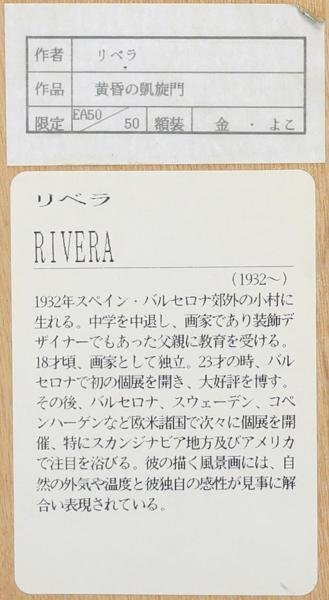 作者 リベラ
作品 黄昏の凱旋門
限定 EA50/50 額装 金 ・ よこ
リベラ
RIVERA
(1932～)
1932年スペイン・バルセロナ郊外の小村に
生れる。中学を中退し、画家であり装飾デ
ザイナーでもあった父親に教育を受ける。
18才頃、画家として独立。23才の時、バル
セロナで初の個展を開き、大好評を博す。
その後、バルセロナ、スウェーデン、コペ
ンハーゲンなど欧米諸国で次々に個展を開
催、特にスカンジナビア地方及びアメリカ
で注目を浴びる。彼の描く風景画には、自
然の外気や温度と彼独自の感性が見事に解
合い表現されている。